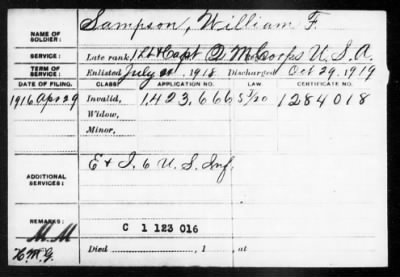 NAME OF SOLDIER: Sampson, William F.
SERVICE: Late rank, 1 Lt & Capt Q M Corps U.S.A.
TERM OF SERVICE: Enlisted July 1918, Discharged Oct 29, 1919
DATE OF FILING. CLASS. APPLICATION NO. LAW. CERTIFICATE NO.
1916 Apr 29 Invalid, 1,423,666 1284018
Widow,
Minor,
ADDITIONAL SERVICES: E & I, 6 U.S. Inf.
REMARKS: C 1 123 016
M M
Died , 1 , at